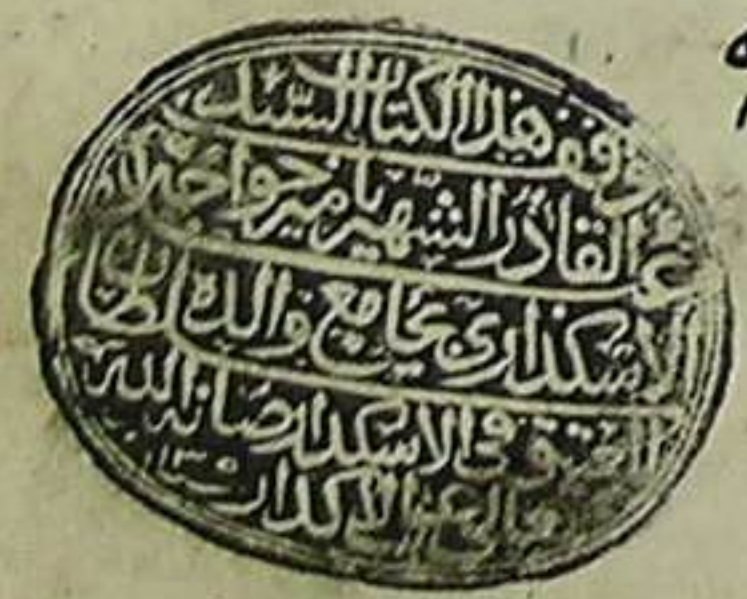 وقف هذا الكتاب السيد
عبد القادر الشهير بأمير خواجه
الاسكداري بجامع والده سلطان
العتيق في الاسكدار صانه الله
عن الاكدار